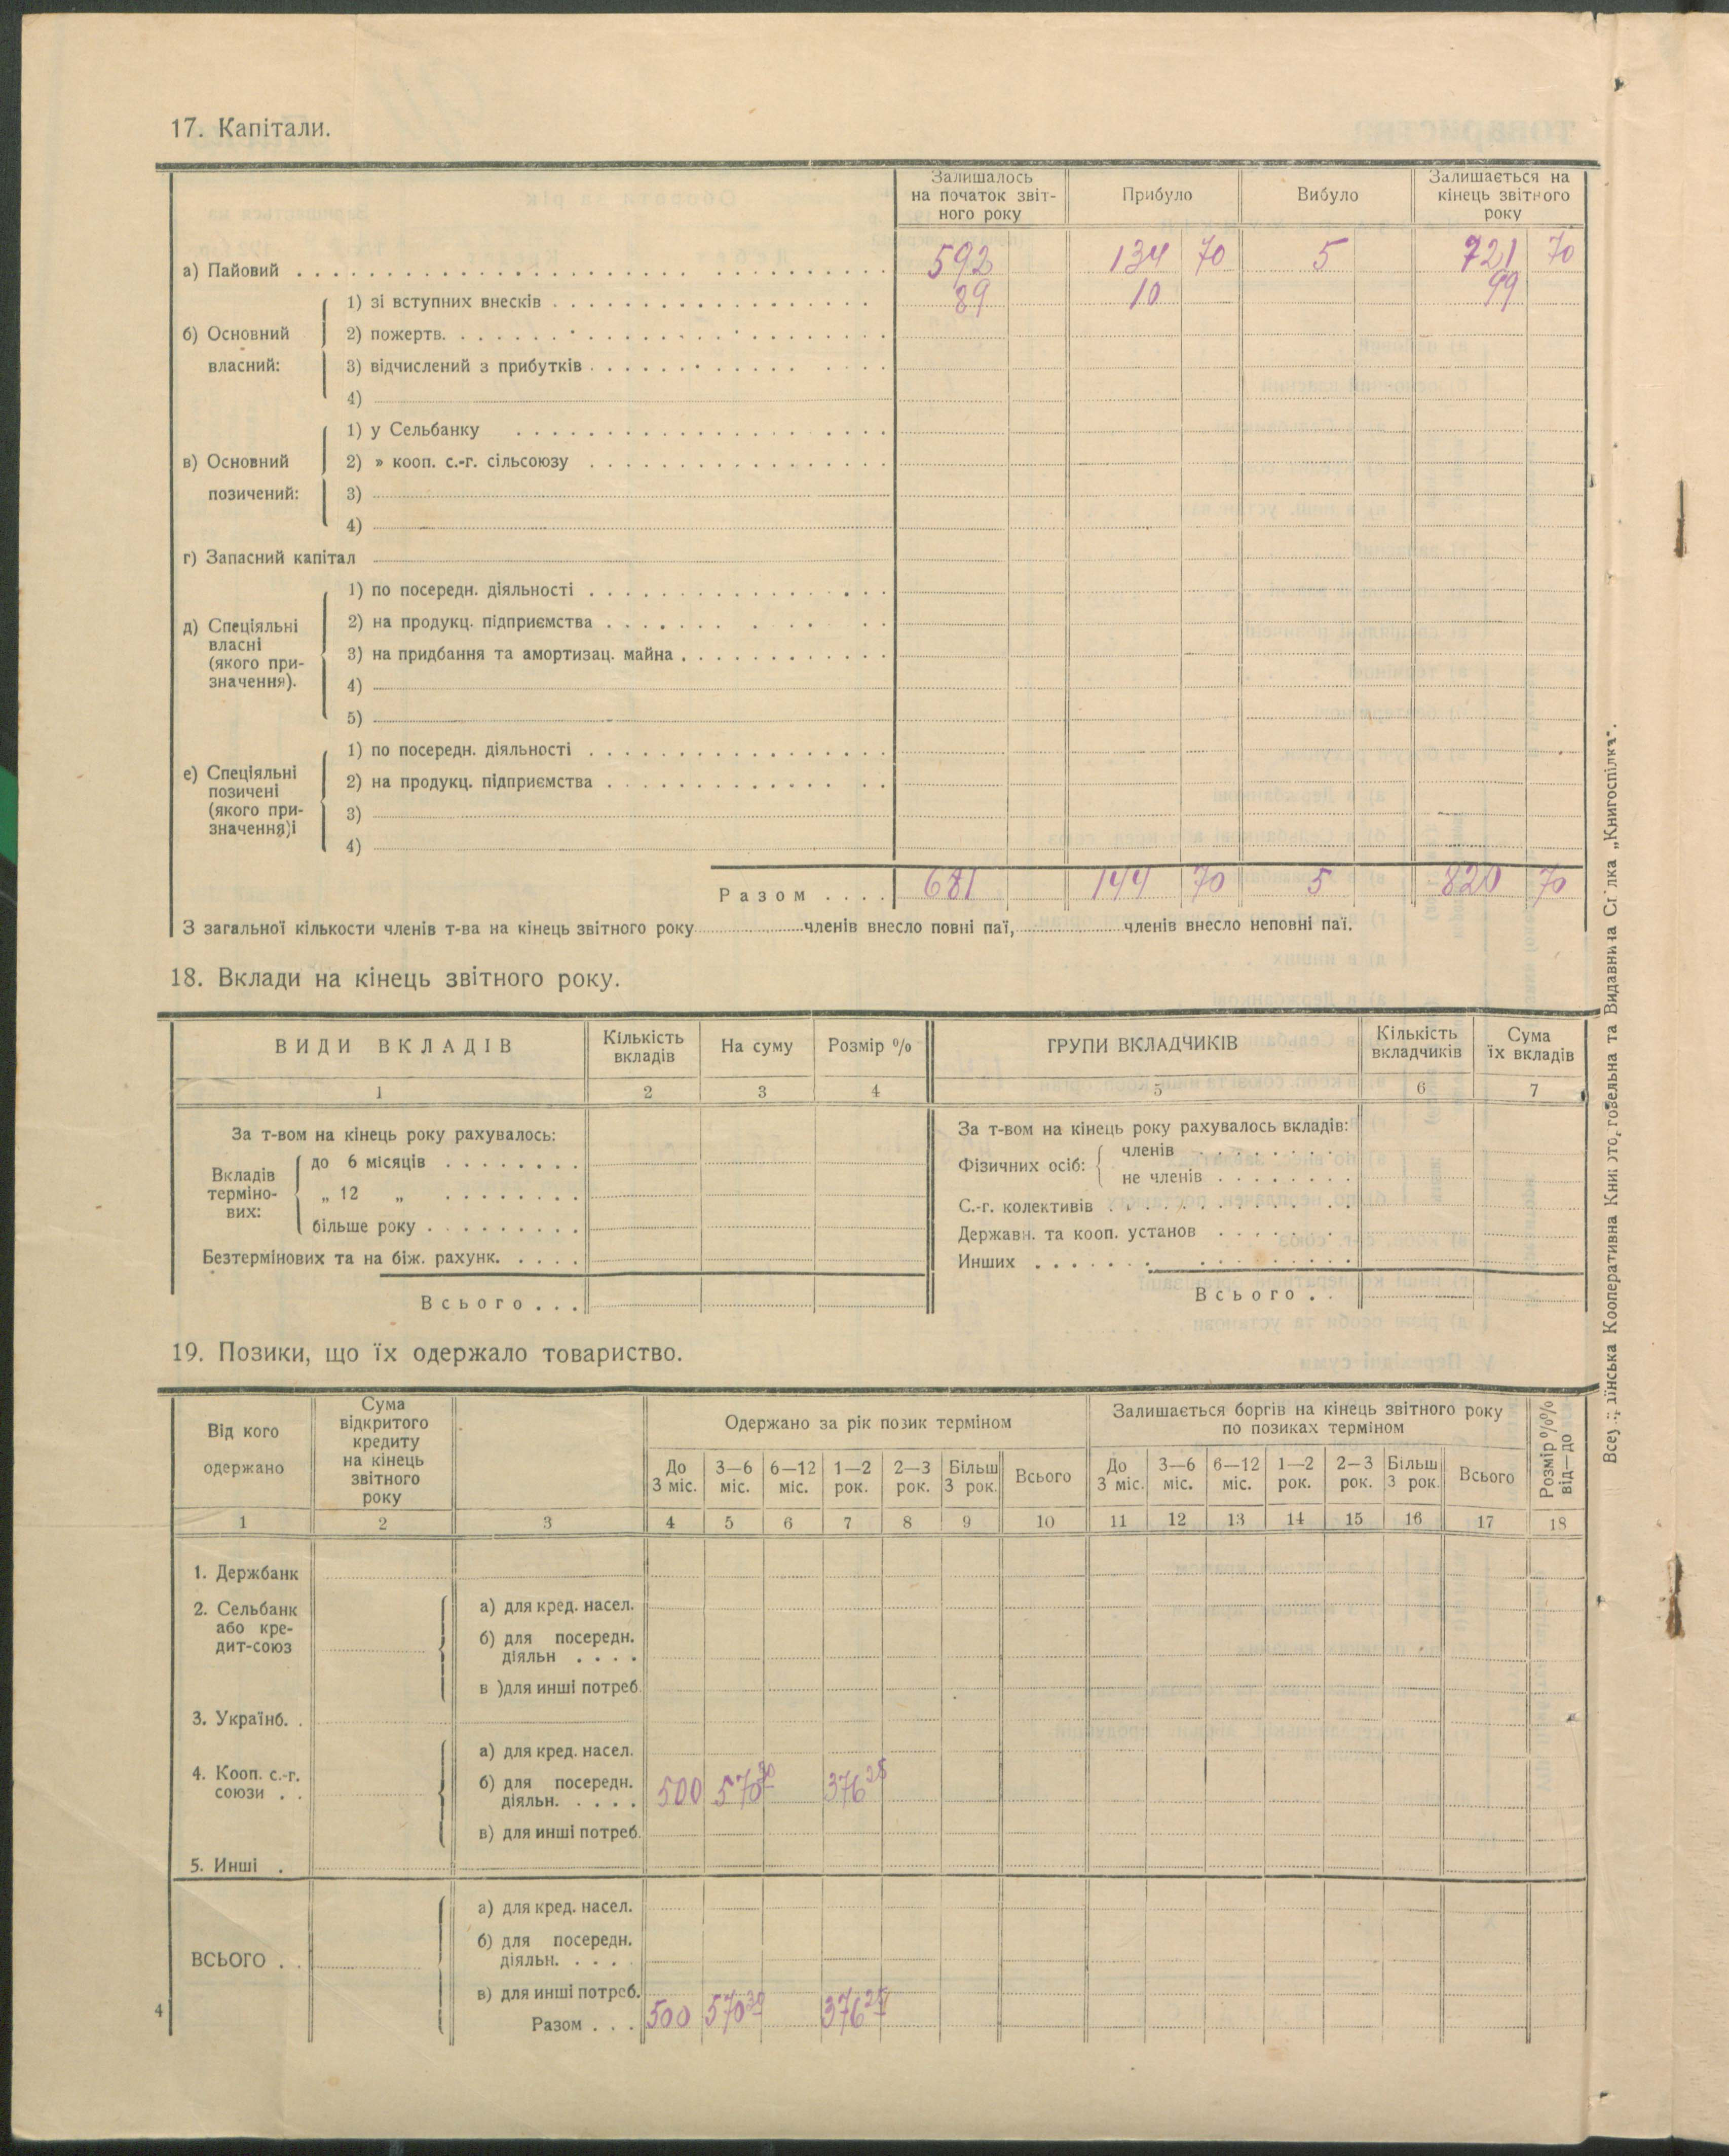 17. Капітали.
Залишалось на початок звіт-ного року | Прибуло | Вибуло | Залишається на кінець звітного року
а) Пайовий | 592 | 134 70 | 5 | 721 70
б) Основний власний:
1) зі вступних внесків | 89 | 10 | | 99
2) пожертв.
3) відчислений з прибутків
4)
в) Основний позичений:
1) у Сельбанку
2) » кооп. с.-г. сільсоюзу
3)
4)
г) Запасний капітал
д) Спеціяльні власні (якого при-значення).
1) по посередн. діяльності
2) на продукц. підприємства
3) на придбання та амортизац. майна
4)
5)
е) Спеціяльні позичені (якого при-значення)і
1) по посередн. діяльності
2) на продукц. підприємства
3)
4)
Разом .... | 681 | 144 70 | 5 | 820 70
З загальної кількости членів т-ва на кінець звітного року ........ членів внесло повні паї, ........ членів внесло неповні паї.
18. Вклади на кінець звітного року.
ВИДИ ВКЛАДІВ | Кількість вкладів | На суму | Розмір % | ГРУПИ ВКЛАДЧИКІВ | Кількість вкладчиків | Сума їх вкладів
1 | 2 | 3 | 4 | 5 | 6 | 7
За т-вом на кінець року рахувалось:
Вкладів терміно-вих:
до 6 місяців
„ 12 „
більше року
Безтермінових та на біж. рахунк.
Всього...
За т-вом на кінець року рахувалось вкладів:
Фізичних осіб:
членів
не членів
С.-г. колективів
Державн. та кооп. установ
Инших
Всього..
19. Позики, що їх одержало товариство.
Від кого одержано | Сума відкритого кредиту на кінець звітного року | | Одержано за рік позик терміном | Залишається боргів на кінець звітного року по позиках терміном | Розмір %% від—до
До 3 міс. | 3—6 міс. | 6—12 міс. | 1—2 рок. | 2—3 рок. | Більш 3 рок. | Всього | До 3 міс. | 3—6 міс. | 6—12 міс. | 1—2 рок. | 2—3 рок. | Більш 3 рок. | Всього
1 | 2 | 3 | 4 | 5 | 6 | 7 | 8 | 9 | 10 | 11 | 12 | 13 | 14 | 15 | 16 | 17 | 18
1. Держбанк
2. Сельбанк або кре-дит-союз
а) для кред. насел.
б) для посередн. діяльн ....
в )для инші потреб.
3. Українб. .
4. Кооп. с.-г. союзи . .
а) для кред. насел.
б) для посередн. діяльн. .... | 500 | 570 30 | | 376 28
в) для инші потреб.
5. Инші .
ВСЬОГО . .
а) для кред. насел.
б) для посередн. діяльн. ....
в) для инші потреб.
Разом ... | 500 | 570 30 | | 376 28
4